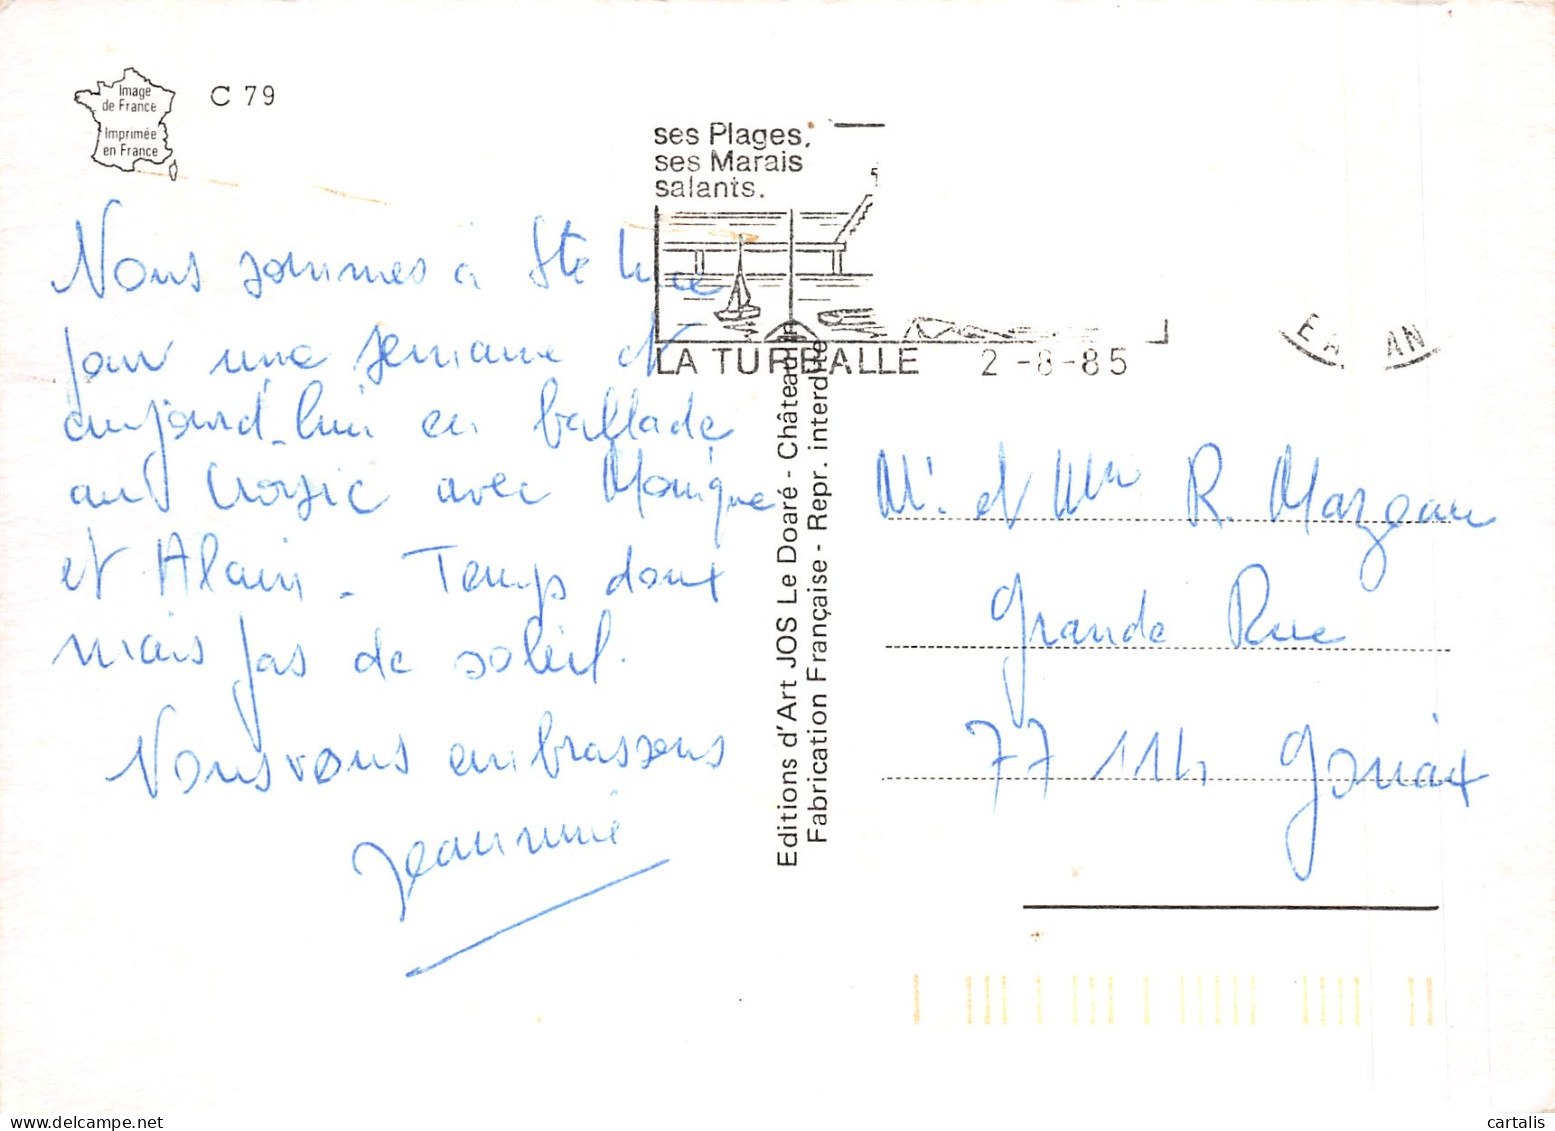 Image
de France
Imprimée
en France
C 79
ses Plages,
ses Marais
salants.
LA TURBALLE 2-8-85
Nous sommes à Ste Luce
pour une semaine et
aujourd-hui en ballade
au Croisic avec Monique
et Alain. Temps doux
mais pas de soleil.
Nous vous embrassons
Jeannine
Editions d'Art JOS Le Doaré - Châteaulin
Fabrication Française - Repr. interdite
Mr. et Mme R. Mazeau
Grande Rue
77 114 Gouaix
cartalis